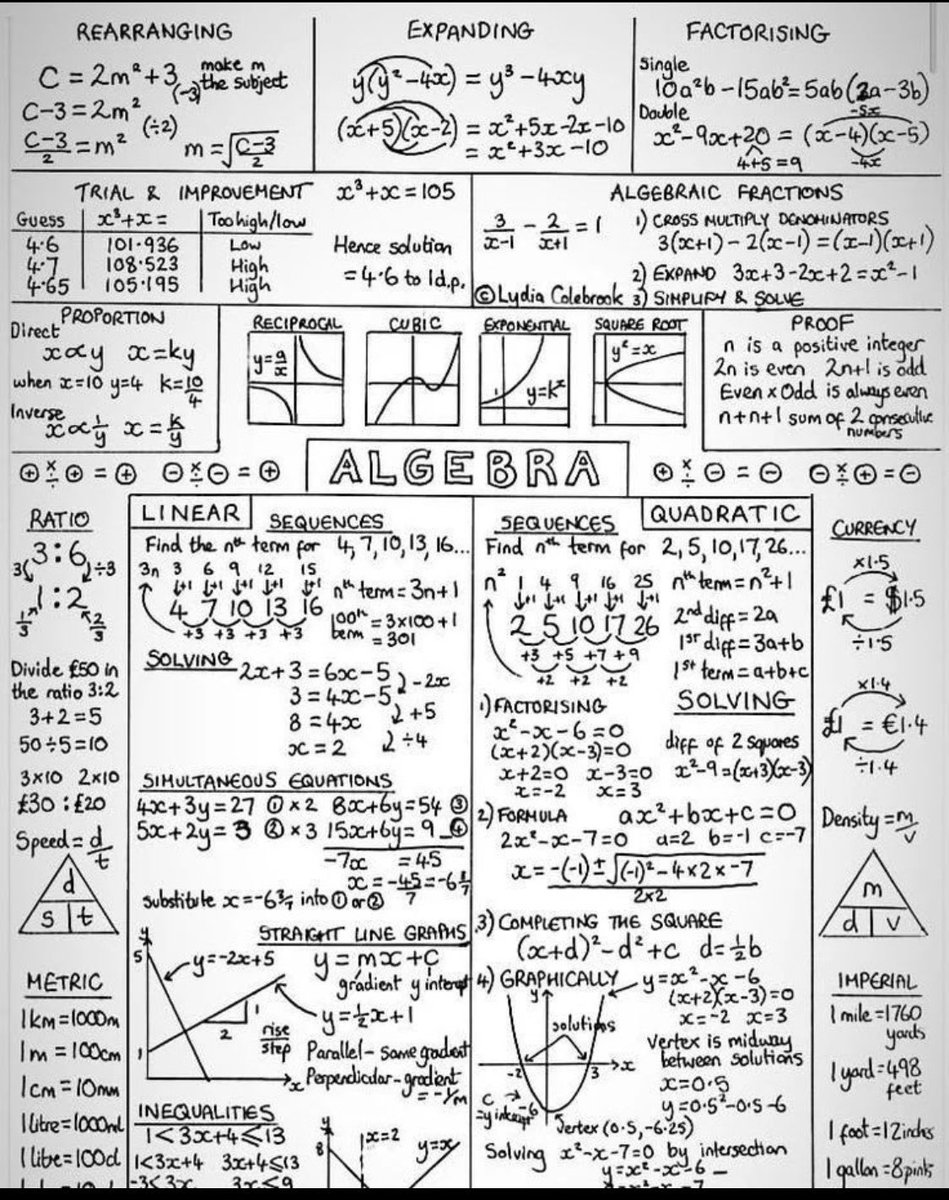 REARRANGING
C = 2m² + 3 make m
(-3) the subject
C-3 = 2m²
(÷2)
C-3/2 = m² m = √C-3/2
EXPANDING
y(y² - 4x) = y³ - 4xy
(x+5)(x-2) = x² + 5x - 2x - 10
= x² + 3x - 10
FACTORISING
Single
10a²b - 15ab² = 5ab(2a - 3b)
Double
-5x
x² - 9x + 20 = (x-4)(x-5)
4+5=9 -4x
TRIAL & IMPROVEMENT x³ + x = 105
Guess x³ + x = Too high/low
4.6 101.936 Low
4.7 108.523 High
4.65 105.195 High
Hence solution
= 4.6 to 1d.p.
ALGEBRAIC FRACTIONS
3/x-1 - 2/x+1 = 1
1) CROSS MULTIPLY DENOMINATORS
3(x+1) - 2(x-1) = (x-1)(x+1)
2) EXPAND 3x+3-2x+2 = x²-1
3) SIMPLIFY & SOLVE
©Lydia Colebrook
PROPORTION
Direct
x∝y x=ky
when x=10 y=4 k=10/4
Inverse
x∝1/y x=k/y
RECIPROCAL
y=a/x
CUBIC
EXPONENTIAL
1
y=kˣ
SQUARE ROOT
y²=x
PROOF
n is a positive integer
2n is even 2n+1 is odd
Even x Odd is always even
n+n+1 sum of 2 consecutive
numbers
⊕ ×÷ ⊕ = ⊕ ⊖ ×÷ ⊖ = ⊕
ALGEBRA
⊕ ×÷ ⊖ = ⊖ ⊖ ×÷ ⊕ = ⊖
RATIO
3:6
÷3
1:2
1/3 2/3
Divide £50 in
the ratio 3:2
3+2=5
50÷5=10
3x10 2x10
£30 : £20
Speed = d/t
d
s t
METRIC
1km=1000m
1m=100cm
1cm=10mm
1litre=1000ml
LINEAR
SEQUENCES
Find the nth term for 4,7,10,13,16...
3n 3 6 9 12 15
+1 +1 +1 +1 +1
4 7 10 13 16
+3 +3 +3 +3
nth term = 3n+1
100th = 3x100+1
term = 301
SOLVING
2x+3 = 6x-5
-2x
3 = 4x-5
+5
8 = 4x
÷4
x = 2
SIMULTANEOUS EQUATIONS
4x+3y=27 ① x2 8x+6y=54 ③
5x+2y=3 ② x3 15x+6y=9 ④
-7x = 45
x = -45/7 = -6 3/7
substitute x=-6 3/7 into ① or ②
STRAIGHT LINE GRAPHS
y
5
y=-2x+5
y = mx + c
gradient y intercept
1
2
rise
step
y=½x+1
1
x
Parallel - same gradient
Perpendicular - gradient
= -1/m
INEQUALITIES
1<3x+4≤13
1<3x+4 3x+4≤13
-3<3x 3x≤9
y
8
x=2
y=x
QUADRATIC
SEQUENCES
Find nth term for 2,5,10,17,26...
n² 1 4 9 16 25
+1 +1 +1 +1 +1
2 5 10 17 26
+3 +5 +7 +9
+2 +2 +2
nth term = n²+1
2nd diff = 2a
1st diff = 3a+b
1st term = a+b+c
SOLVING
1) FACTORISING
x²-x-6=0
(x+2)(x-3)=0
x+2=0 x-3=0
x=-2 x=3
diff of 2 squares
x²-9=(x+3)(x-3)
2) FORMULA ax²+bx+c=0
2x²-x-7=0 a=2 b=-1 c=-7
x = -(-1)±√(-1)²-4x2x-7
2x2
3) COMPLETING THE SQUARE
(x+d)²-d²+c d=½b
4) GRAPHICALLY
y=x²-x-6
(x+2)(x-3)=0
x=-2 x=3
y
solutions
-2 3 x
-6
c
=y intercept
Vertex (0.5,-6.25)
Vertex is midway
between solutions
x=0.5
y=0.5²-0.5-6
Solving x²-x-7=0 by intersection
y=x²-x-6
CURRENCY
x1.5
£1 = $1.5
÷1.5
x1.4
£1 = €1.4
÷1.4
Density = m/v
m
d v
IMPERIAL
1 mile = 1760
yards
1 yard = 498
feet
1 foot = 12 inches
1 gallon = 8 pints